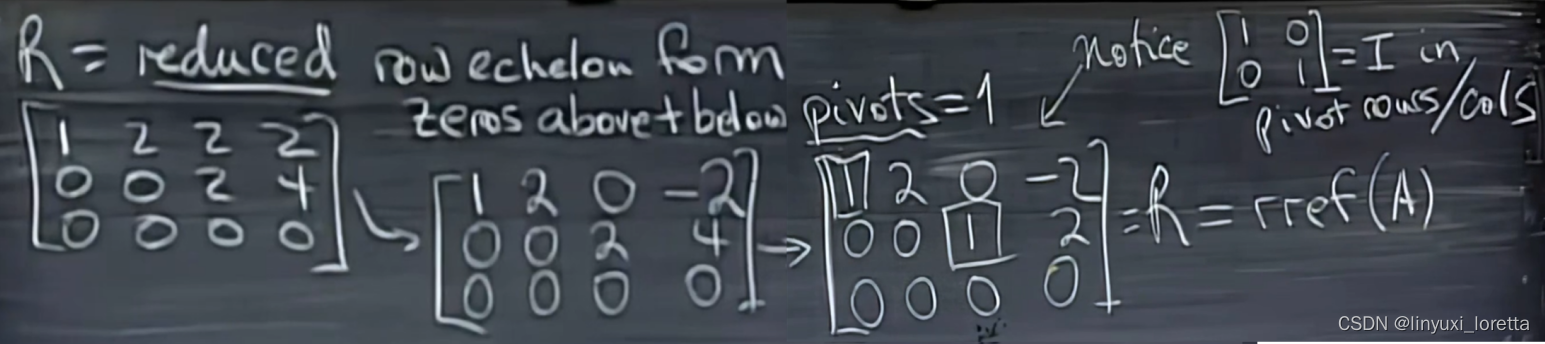 R = reduced row echelon form
zeros above + below pivots = 1
notice [1 0
0 1] = I in
pivot rows/cols
[1 2 2 2
0 0 2 4
0 0 0 0]
→
[1 2 0 -2
0 0 2 4
0 0 0 0]
→
[1 2 0 -2
0 0 1 2
0 0 0 0]
= R = rref(A)
CSDN @linyuxi_loretta